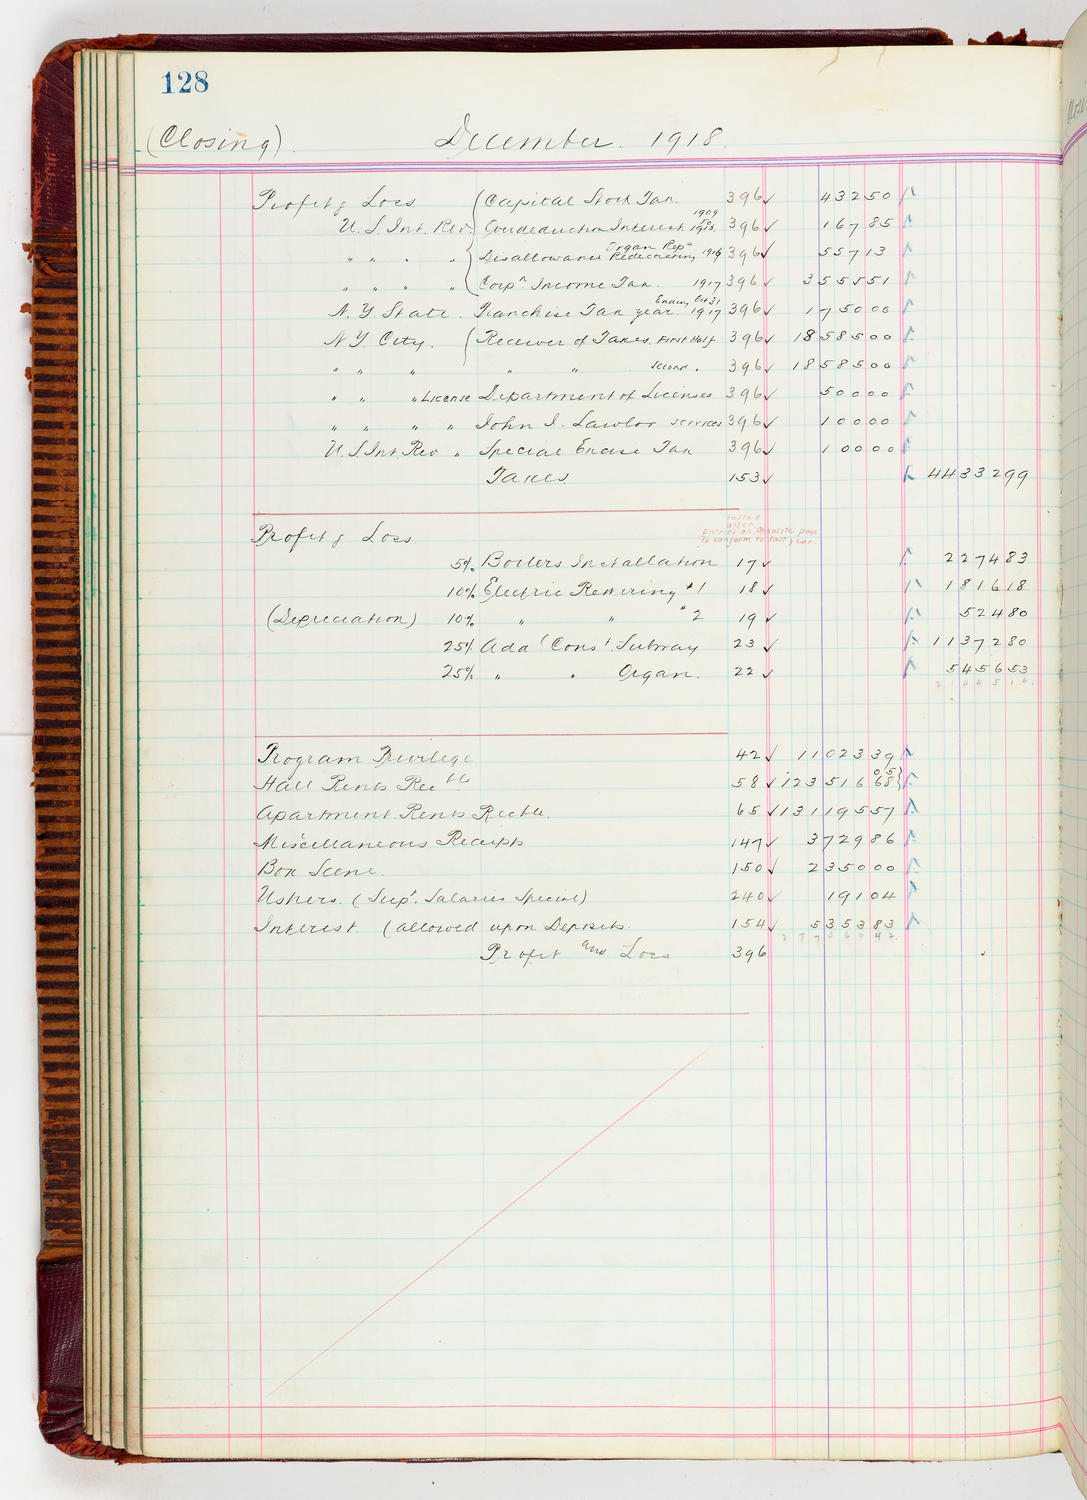 128
(Closing). December. 1918
Profit & Loss (Capital Stock Tax. 396 ✓ 432 50
U.S. Int. Rev. Interest 1909 to 1913 396 ✓ 167 85
" " " " Disallowance Organ Repn Redecorating 1916 396 ✓ 557 13
" " " " Corpn Income Tax. 1917 396 ✓ 3555 51
N.Y. State. Franchise Tax year Ending Oct 31 1917 396 ✓ 1750 00
N.Y. City. (Receiver of Taxes. First Half 396 ✓ 18585 00
" " " " " Second " 396 ✓ 18585 00
" " " License Department of Licenses 396 ✓ 500 00
" " " " John J. Lawlor services 396 ✓ 100 00
U.S. Int Rev " Special Excise Tax 396 ✓ 100 00
Taxes 153 ✓ 44332 99
Posted
after
Entries on Opposite page
To conform to last year.
Profit & Loss
5% Boilers Installation 17 ✓ 2274 83
10% Electric Rewiring #1 18 ✓ 1816 18
(Depreciation) 10% " " " 2 19 ✓ 524 80
25% Ada' Cons'. Subway 23 ✓ 11372 80
25% " " Organ. 22 ✓ 5456 53
21445 14
Program Privilege 42 ✓ 11023 39
Hall Rents Recble 58 ✓ 123516 68 05
Apartment Rents Recble. 65 ✓ 131195 57
Miscellaneous Receipts 147 ✓ 3729 86
Box Scene. 150 ✓ 2350 00
Ushers. (Supt. Salaries Special) 240 ✓ 191 04
Interest (allowed upon Deposits. 154 ✓ 5353 83
Profit and Loss 396